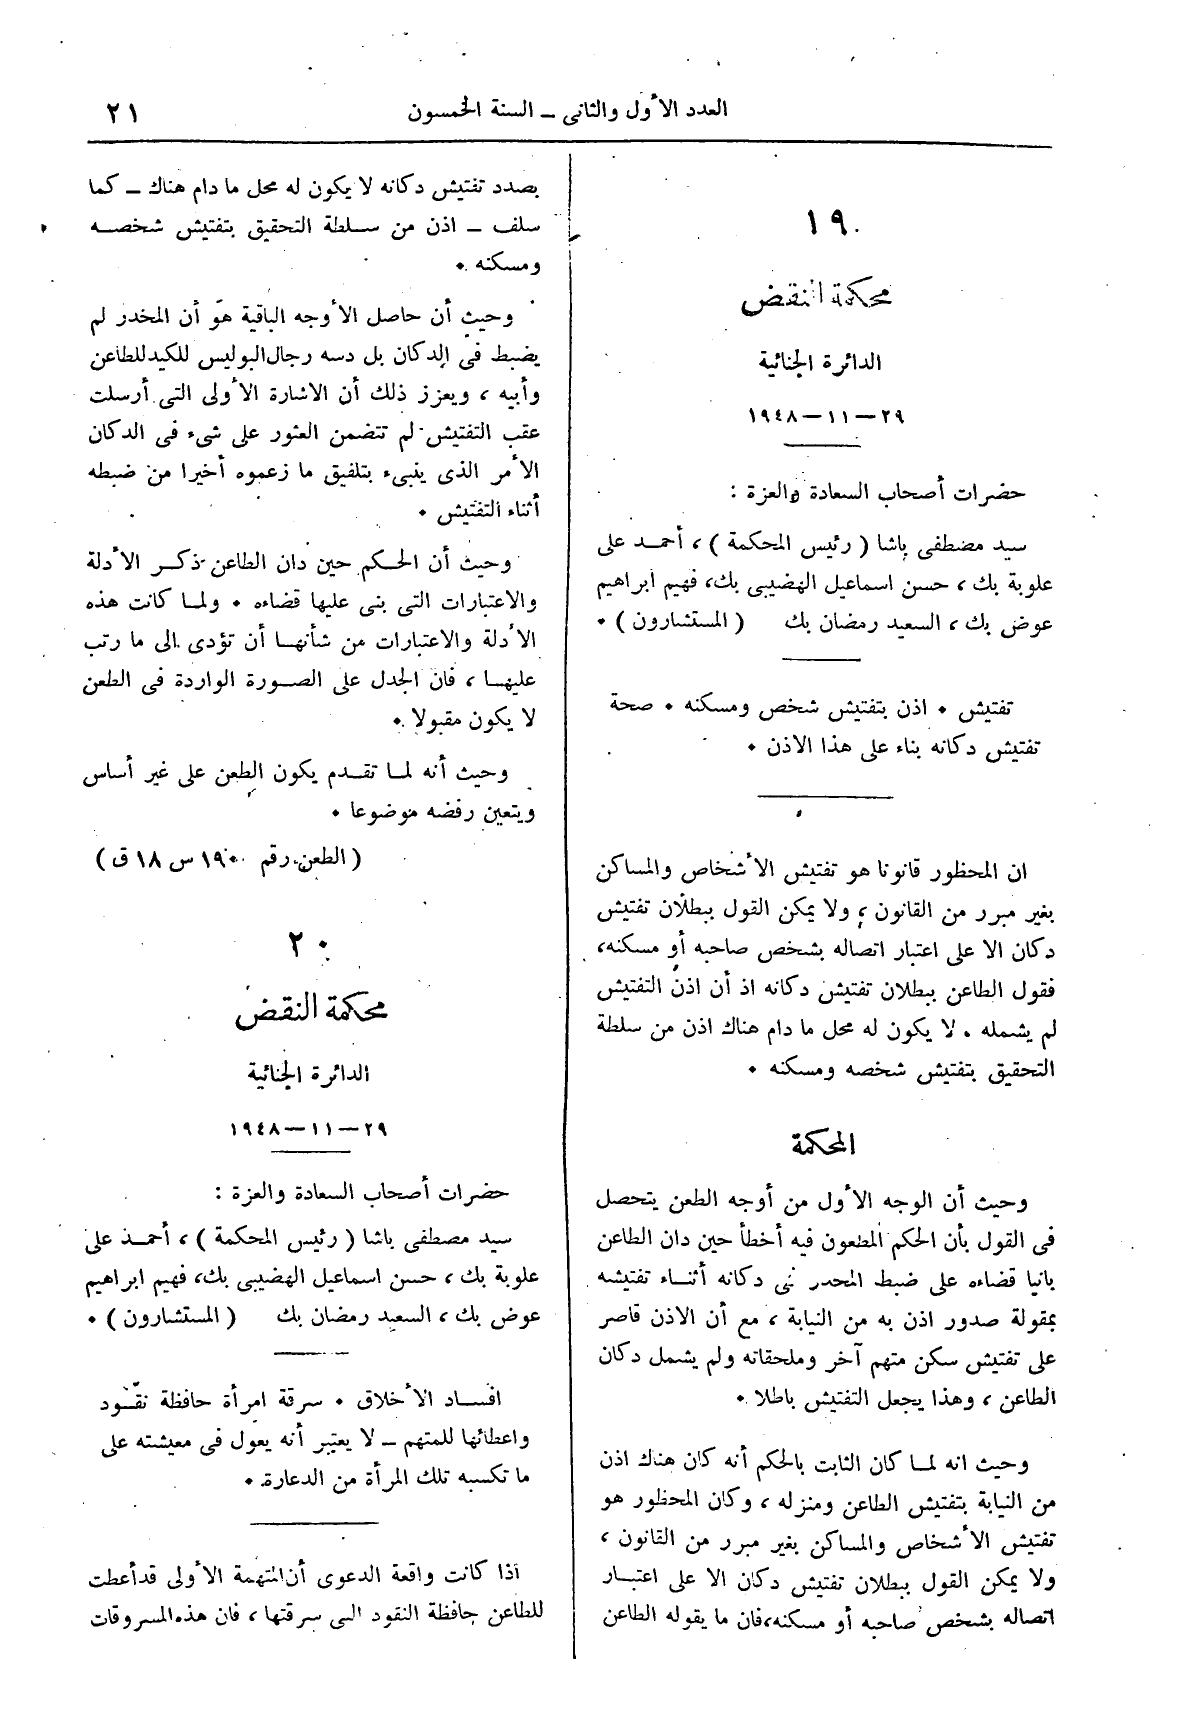 العدد الأول والثانى ــ السنة الخمسون
٢١
١٩
محكمة النقض
الدائرة الجنائية
٢٩ــ١١ــ١٩٤٨
حضرات أصحاب السعادة والعزة :
سيد مصطفى باشا ( رئيس المحكمة ) ، أحمد على
علوبة بك ، حسن اسماعيل الهضيبى بك، فهيم ابراهيم
عوض بك ، السعيد رمضان بك ( المستشارون ) ٠
تفتيش ٠ اذن بتفتيش شخص ومسكنه ٠ صحة
تفتيش دكانه بناء على هذا الاذن ٠
ان المحظور قانونا هو تفتيش الأشخاص والمساكن
بغير مبرر من القانون ، ولا يمكن القول ببطلان تفتيش
دكان الا على اعتبار اتصاله بشخص صاحبه أو مسكنه،
فقول الطاعن ببطلان تفتيش دكانه اذ أن اذن التفتيش
لم يشمله ٠ لا يكون له محل ما دام هناك اذن من سلطة
التحقيق بتفتيش شخصه ومسكنه ٠
المحكمة
وحيث أن الوجه الأول من أوجه الطعن يتحصل
فى القول بأن الحكم المطعون فيه أخطأ حين دان الطاعن
بانيا قضاءه على ضبط المخدر فى دكانه أثناء تفتيشه
بمقولة صدور اذن به من النيابة ، مع أن الاذن قاصر
على تفتيش سكن متهم آخر وملحقاته ولم يشمل دكان
الطاعن ، وهذا يجعل التفتيش باطلا ٠
وحيث انه لما كان الثابت بالحكم أنه كان هناك اذن
من النيابة بتفتيش الطاعن ومنزله ، وكان المحظور هو
تفتيش الأشخاص والمساكن بغير مبرر من القانون ،
ولا يمكن القول ببطلان تفتيش دكان الا على اعتبار
اتصاله بشخص صاحبه أو مسكنه،فان ما يقوله الطاعن
بصدد تفتيش دكانه لا يكون له محل ما دام هناك ــ كما
سلف ــ اذن من سلطة التحقيق بتفتيش شخصه
ومسكنه ٠
وحيث أن حاصل الأوجه الباقية هو أن المخدر لم
يضبط فى الدكان بل دسه رجال البوليس للكيد للطاعن
وأبيه ، ويعزز ذلك أن الاشارة الأولى التى أرسلت
عقب التفتيش لم تتضمن العثور على شىء فى الدكان
الأمر الذى ينبىء بتلفيق ما زعموه أخيرا من ضبطه
أثناء التفتيش ٠
وحيث أن الحكم حين دان الطاعن ذكر الأدلة
والاعتبارات التى بنى عليها قضاءه ٠ ولما كانت هذه
الأدلة والاعتبارات من شأنها أن تؤدى الى ما رتب
عليها ، فان الجدل على الصورة الواردة فى الطعن
لا يكون مقبولا ٠
وحيث أنه لما تقدم يكون الطعن على غير أساس
ويتعين رفضه موضوعا ٠
( الطعن رقم ١٩٠٠ س ١٨ ق )
٢٠
محكمة النقض
الدائرة الجنائية
٢٩ــ١١ــ١٩٤٨
حضرات أصحاب السعادة والعزة :
سيد مصطفى باشا ( رئيس المحكمة ) ، أحمد على
علوبة بك ، حسن اسماعيل الهضيبى بك، فهيم ابراهيم
عوض بك ، السعيد رمضان بك ( المستشارون ) ٠
افساد الأخلاق ٠ سرقة امرأة حافظة نقود
واعطائها للمتهم ــ لا يعتبر أنه يعول فى معيشته على
ما تكسبه تلك المرأة من الدعارة ٠
اذا كانت واقعة الدعوى أن المتهمة الأولى قد أعطت
للطاعن حافظة النقود التى سرقتها ، فان هذه المسروقات